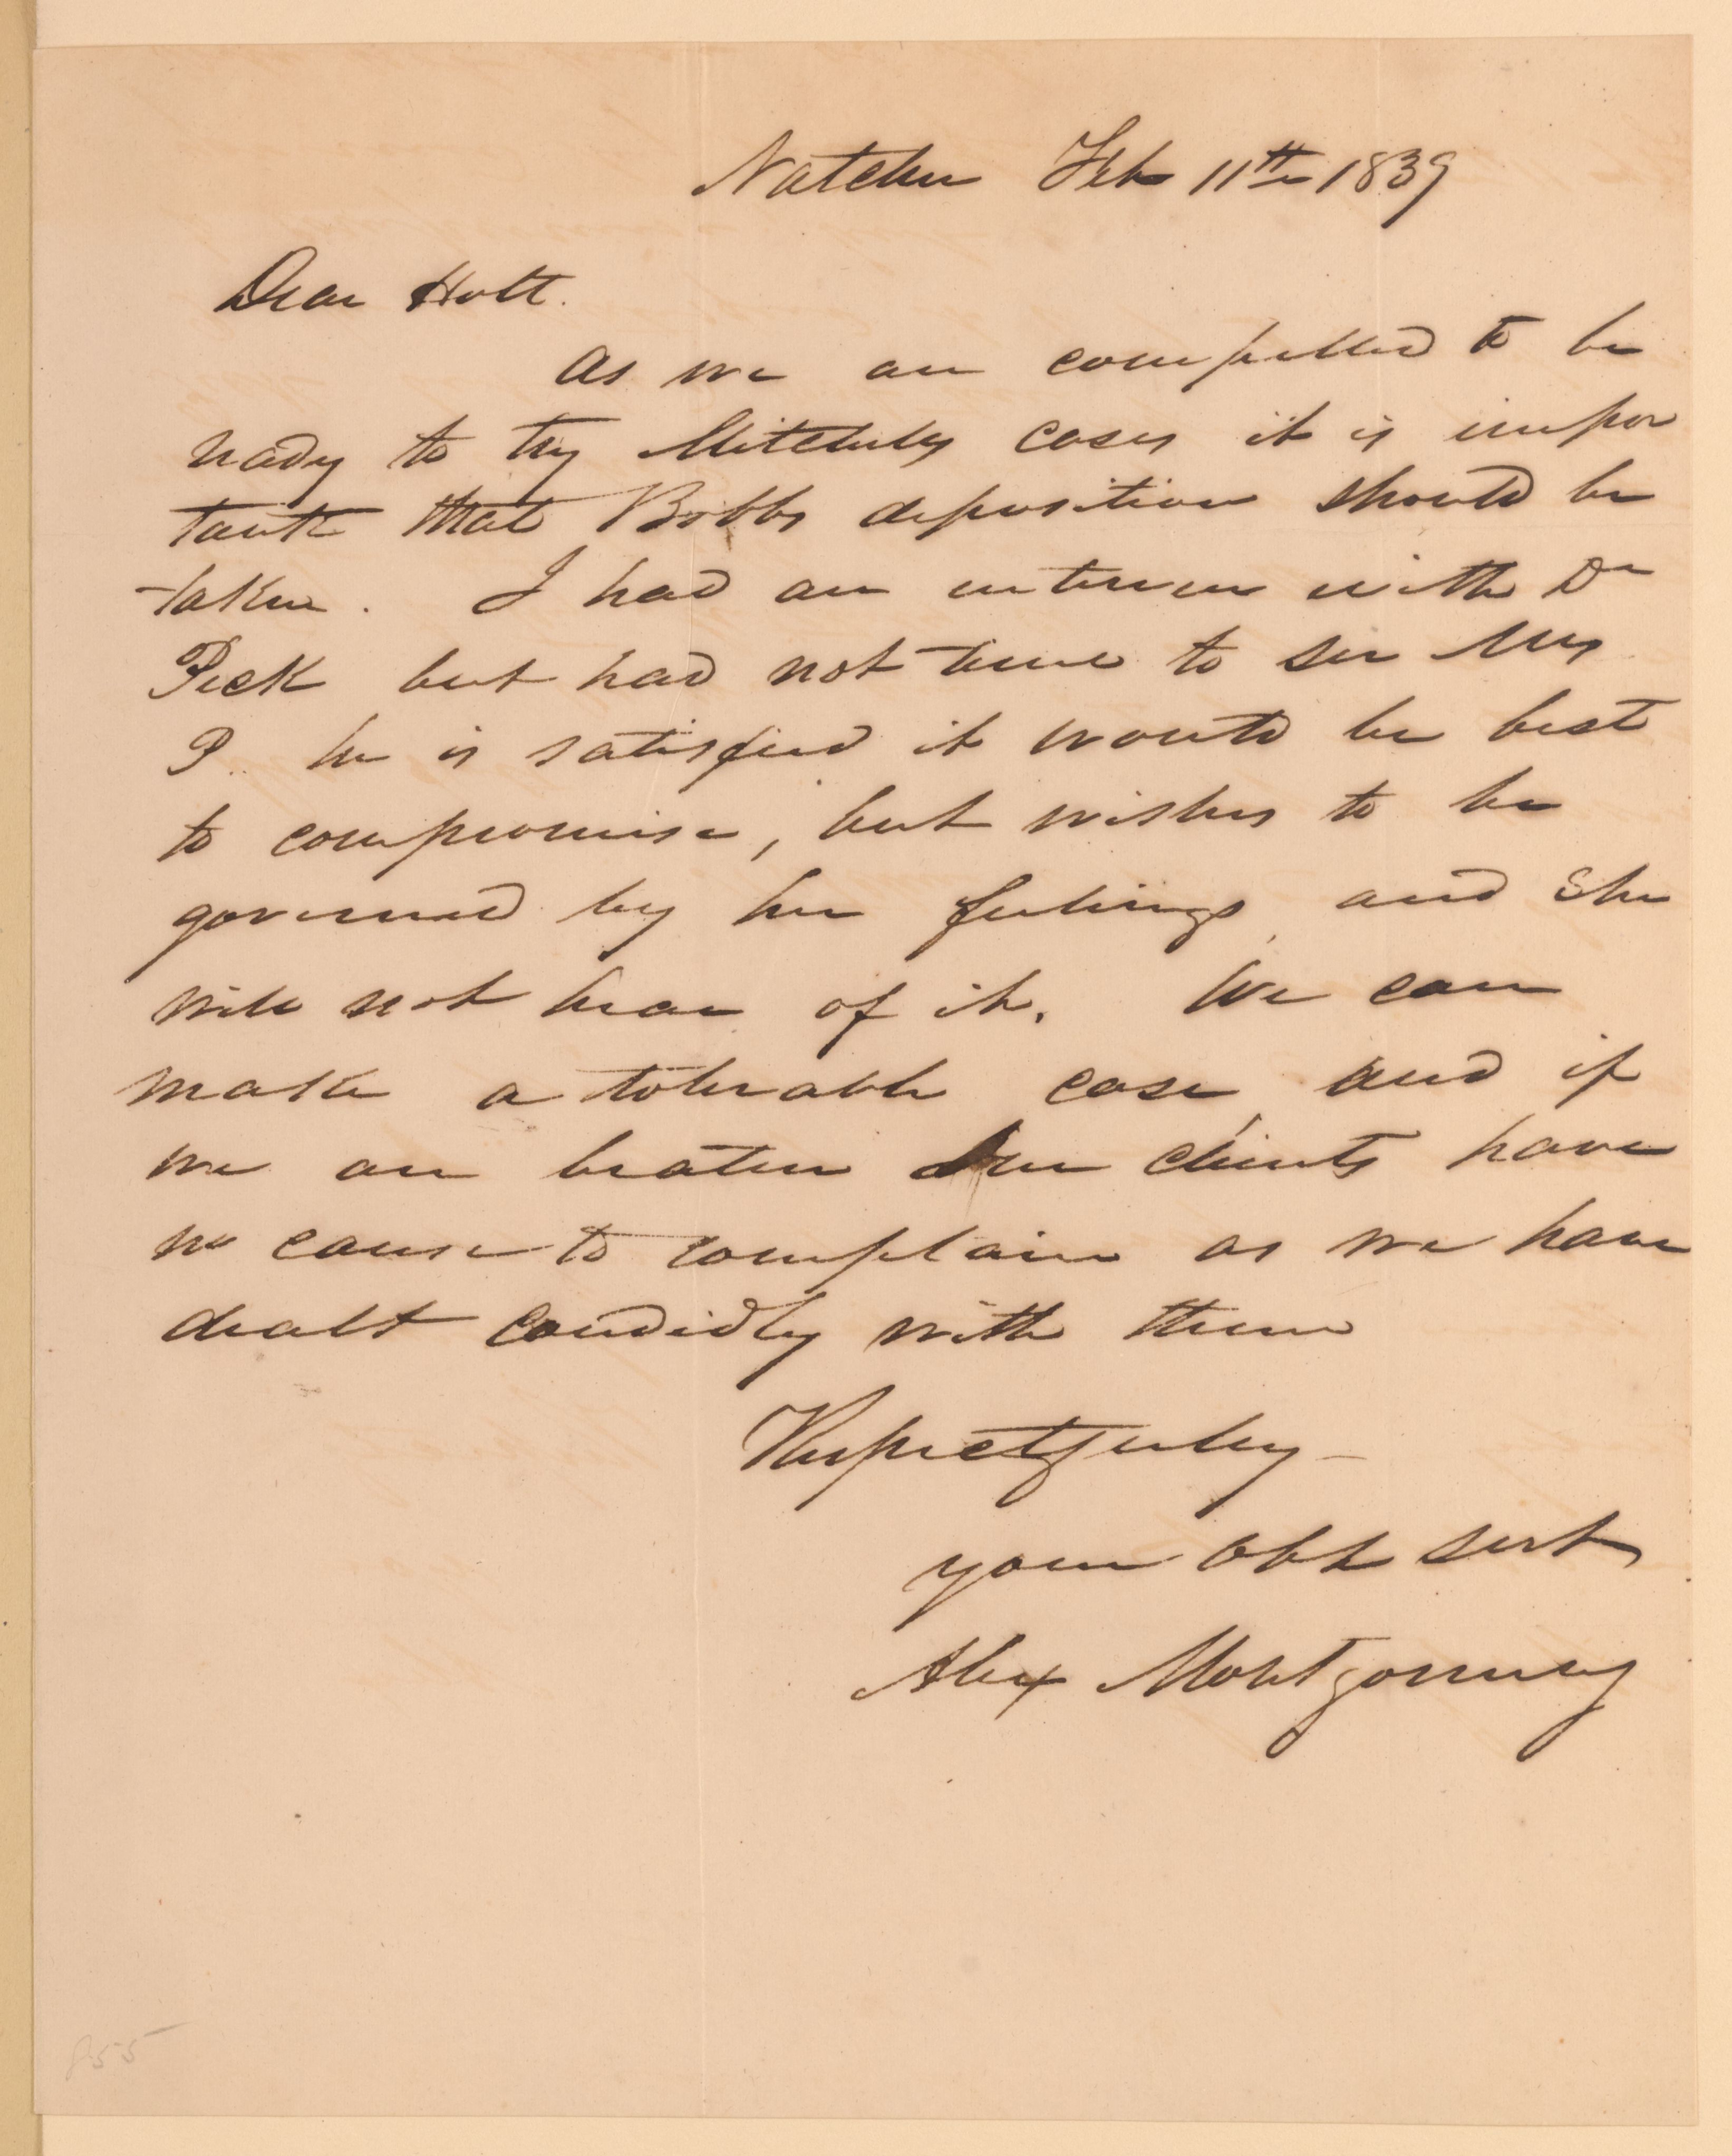 Natchez Feb 11th 1839
Dear Holt.
As we are compelled to be
ready to try Mitchells cases it is impor
tant that Bobbs deposition should be
taken. I had an interview with Dr
Peck but had not time to see Mrs
P. he is satisfied it would be best
to compromise, but wishes to be
governed by her feelings, and she
will not hear of it. We can
make a tolerable case and if
we are beaten our clients have
no cause to complain as we have
dealt candidly with them
Respectfully
your obt servt
Alex Montgomery
855